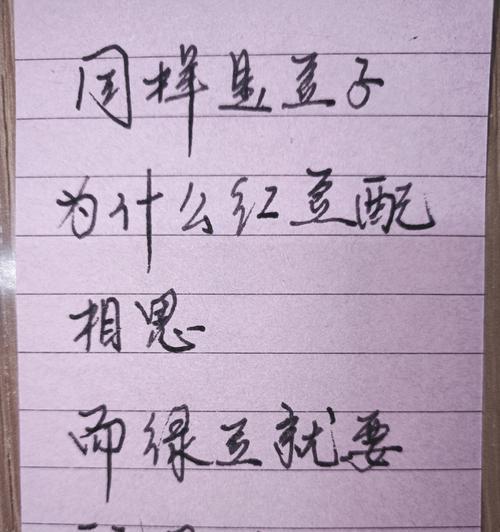 同样是豆子
为什么红豆配
相思
而绿豆就要